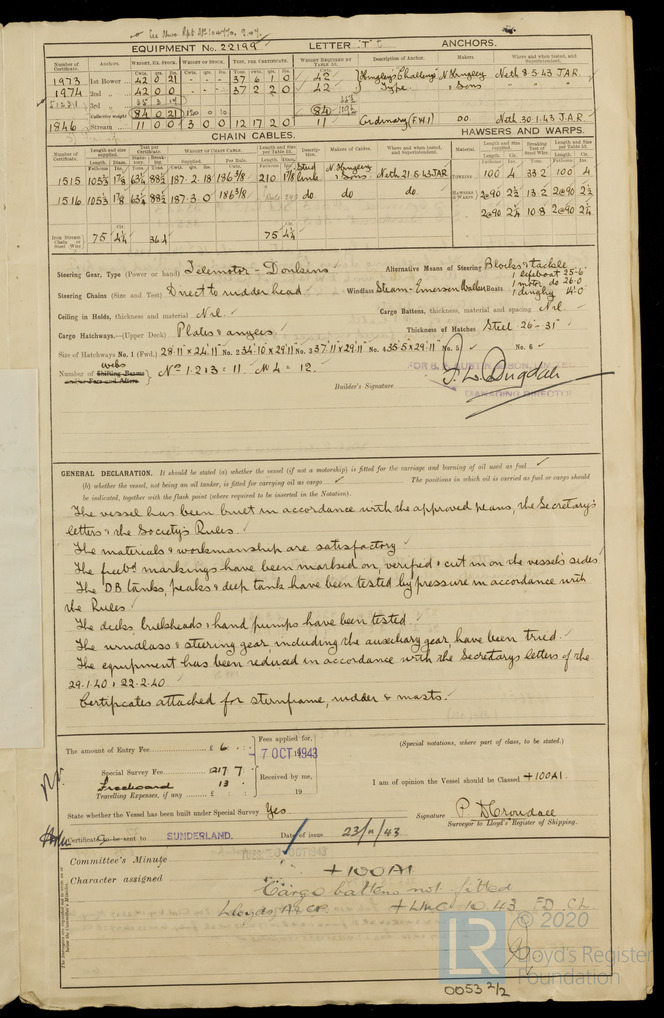 EQUIPMENT No. 22199 LETTER "T" ANCHORS.
Number of Certificate. Anchors. WEIGHT, EX. STOCK. WEIGHT OF STOCK. TEST, PER CERTIFICATE. WEIGHT REQUIRED BY TABLE 31. Description of Anchor. Makers Where and when tested, and Superintendent.
1973 1st Bower 42 0 21 37 6 1 0 42 N. Hingley Neth 8.5.43 J.A.R.
1974 2nd " 42 0 0 37 2 2 0 42 Type & Sons " " "
3rd "
Collective weight 84 0 21 84
1846 Stream 11 0 0 3 0 0 12 17 2 0 11 Ordinary (F.W.I) do. Neth 30.1.43 J.A.R.
CHAIN CABLES. HAWSERS AND WARPS.
Number of Certificate. Length and size supplied. Test per Certificate. WEIGHT OF CHAIN CABLE. Length and size per Table 31. Description. Makers of Cables. Where and when tested, and Superintendent. Material. Length and size supplied. Breaking Test of Steel Wire. Length and size per Table 31.
1515 105¾ 1⅞ 63¼ 88½ 187.2.18 186⅜ 210 1⅞ Stud link N. Hingley & Sons Neth 21.5.43 JAR TOWLINE 100 4 33.2 100 4
1516 105¾ 1⅞ 63¼ 88½ 187.3.0 186⅜ do do do HAWSERS & WARPS 2@90 2½ 13.2 2@90 2½
2@90 2¼ 10.8 2@90 2¼
Iron Stream Chain or Steel Wire 75 4¼ 36.4 75 4¼
Steering Gear, Type (Power or hand) Telemotor - Donkins Alternative Means of Steering Blocks & tackle
Steering Chains (Size and Test) Direct to rudder head Windlass Steam - Emerson Walker Boats 1 lifeboat 25-6" 1 motor do 26.0 1 dinghy 14'-0
Ceiling in Holds, thickness and material Nil. Cargo Battens, thickness, material and spacing Nil.
Cargo Hatchways.—(Upper Deck) Plates & angles Thickness of Hatches Steel .26"-.31"
Size of Hatchways No. 1 (Fwd.) 28'11" x 24'11" No. 2 34'10 x 29'11" No. 3 37'11" x 29'11" No. 4 35'5 x 29'11" No. 5 No. 6
Number of webs Shifting Beams and/or Fore and Afters } No 1. 2 & 3 = 11. No 4 = 12.
Builder's Signature
MANAGING DIRECTOR
GENERAL DECLARATION. It should be stated (a) whether the vessel (if not a motorship) is fitted for the carriage and burning of oil used as fuel
(b) whether the vessel, not being an oil tanker, is fitted for carrying oil as cargo The positions in which oil is carried as fuel or cargo should
be indicated, together with the flash point (where required to be inserted in the Notation).
The vessel has been built in accordance with the approved plans, the Secretary's
letters & the Society's Rules.
The materials & workmanship are satisfactory
The freebd markings have been marked on, verified & cut in on the vessel's sides
The DB tanks, peaks & deep tank have been tested by pressure in accordance with
the Rules
The decks, bulkheads & hand pumps have been tested
The windlass & steering gear, including the auxiliary gear, have been tried.
The equipment has been reduced in accordance with the Secretary's letters of the
29.1.40 & 22.2.40
Certificates attached for sternframe, rudder & masts.
The amount of Entry Fee £ 6 Fees applied for, 7 OCT 1943 (Special notations, where part of class, to be stated.)
Special Survey Fee 217 7 Received by me,
Freeboard 13 19
Travelling Expenses, if any £ I am of opinion the Vessel should be Classed +100A1
State whether the Vessel has been built under Special Survey Yes Signature
Surveyor to Lloyd's Register of Shipping.
Certificate to be sent to SUNDERLAND. Date of issue 23/11/43
Committee's Minute
Character assigned
+100A1
Cargo battens not fitted
Lloyds A & CP. + LMC 10.43 FD CL
© 2020
LR Lloyd's Register
Foundation
0053 2/2